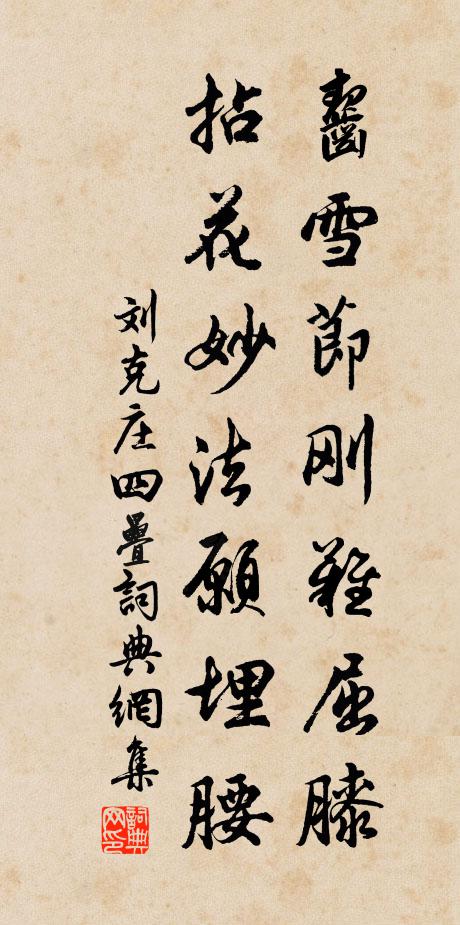 齧雪節刚難屈膝
拈花妙法願埋腰
刘克庄四疊詞典網集
詞典网印